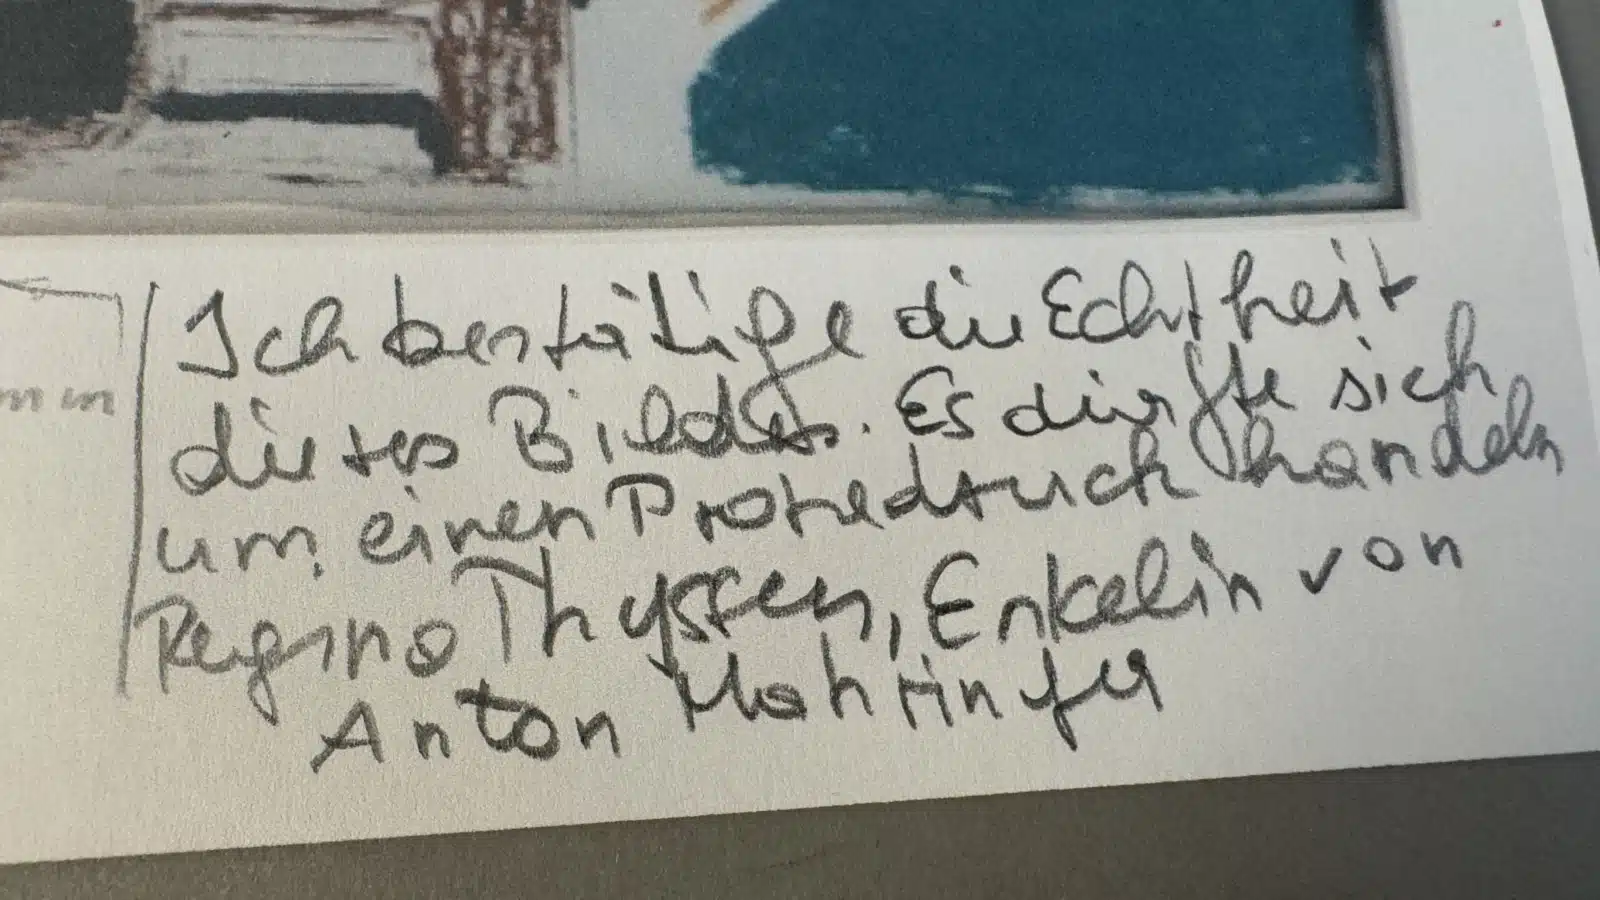 Ich bestätige die Echtheit
dieses Bildes. Es dürfte sich
um einen Probedruck handeln
mm
Regina Thyssen, Enkelin von
Anton Mahringer